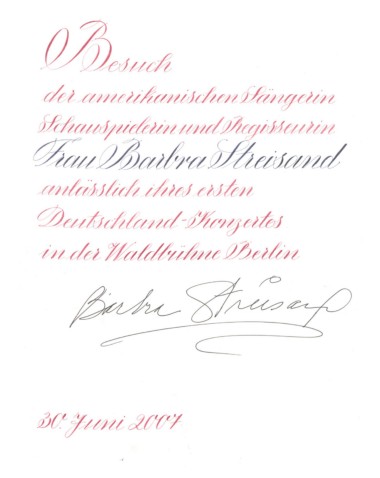 Besuch
der amerikanischen Sängerin
Schauspielerin und Regisseurin
Frau Barbra Streisand
anlässlich ihres ersten
Deutschland-Konzertes
in der Waldbühne Berlin
Barbra Streisand
30. Juni 2007